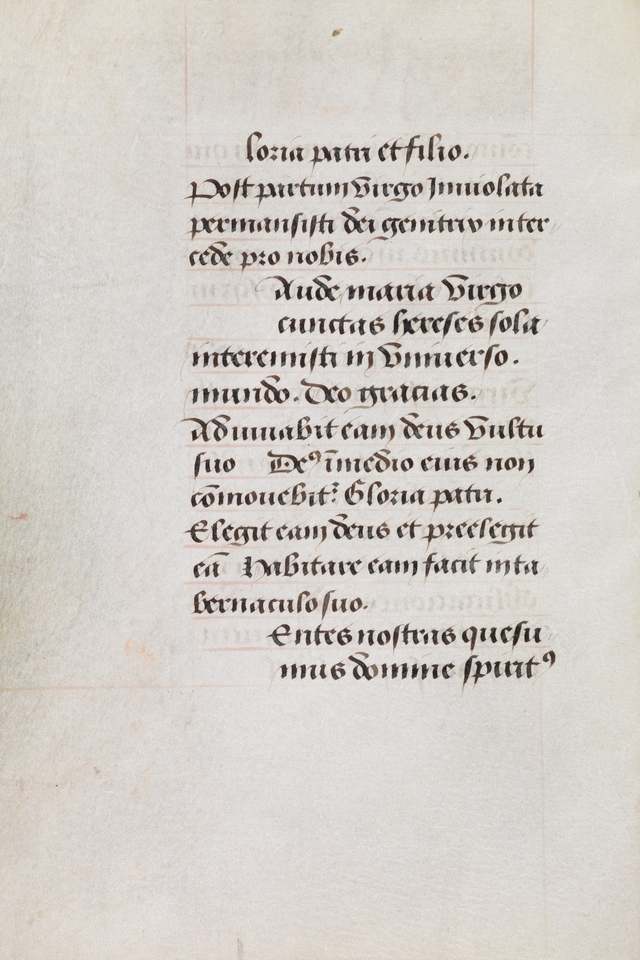 loria patri et filio.
Post partum virgo Inuiolata
permansisti dei genitrix inter
cede pro nobis.
Aude maria virgo
cunctas hereses sola
interemisti in vniuerso.
mundo. Deo gracias.
Adiuuabit eam deus vultu
suo Deꝰ ī medio eius non
cōmouebit᷑ Gloria patri.
Elegit eam deus et preelegit
eā Habitare eam facit in ta
bernaculo suo.
Entes nostras quesu
mus domine spiritꝰ